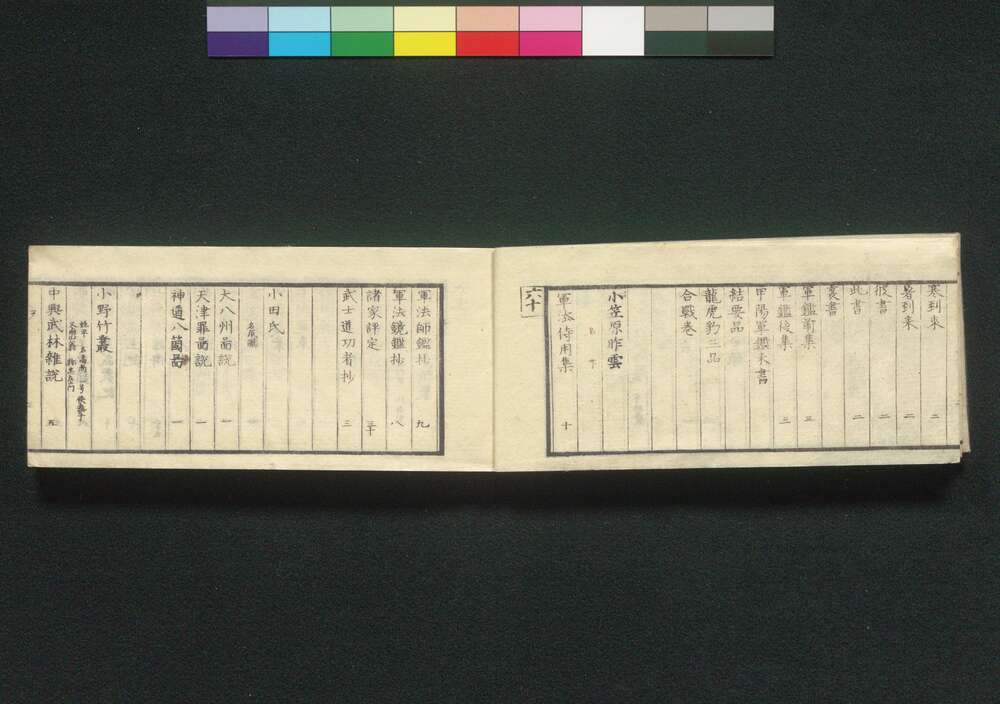 寒到来 二
暑到来 二
彼書 二
此書 二
叢書
軍鑑前集 三
軍鑑後集 三
甲陽軍鑑末書
結要品
龍虎豹三品
合戰巻
小笠原昨雲
軍法侍用集 十
六十
軍法師鑑抄 九
軍法鏡鑑抄 八
諸家評定 三十
武士道功者抄 三
小田氏
大八州啚説 一
天津罪啚説 一
神道八箇啚 一
小野竹叢
中興武林雜説 五